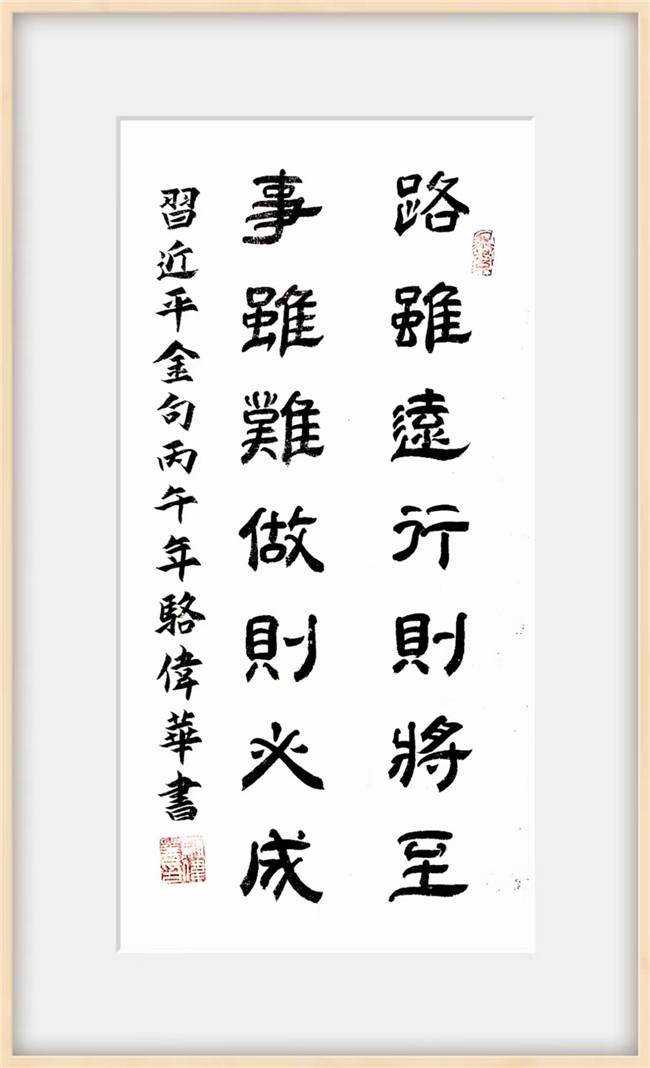 路雖遠行則將至
事雖難做則必成
習近平金句丙午年駱偉華書